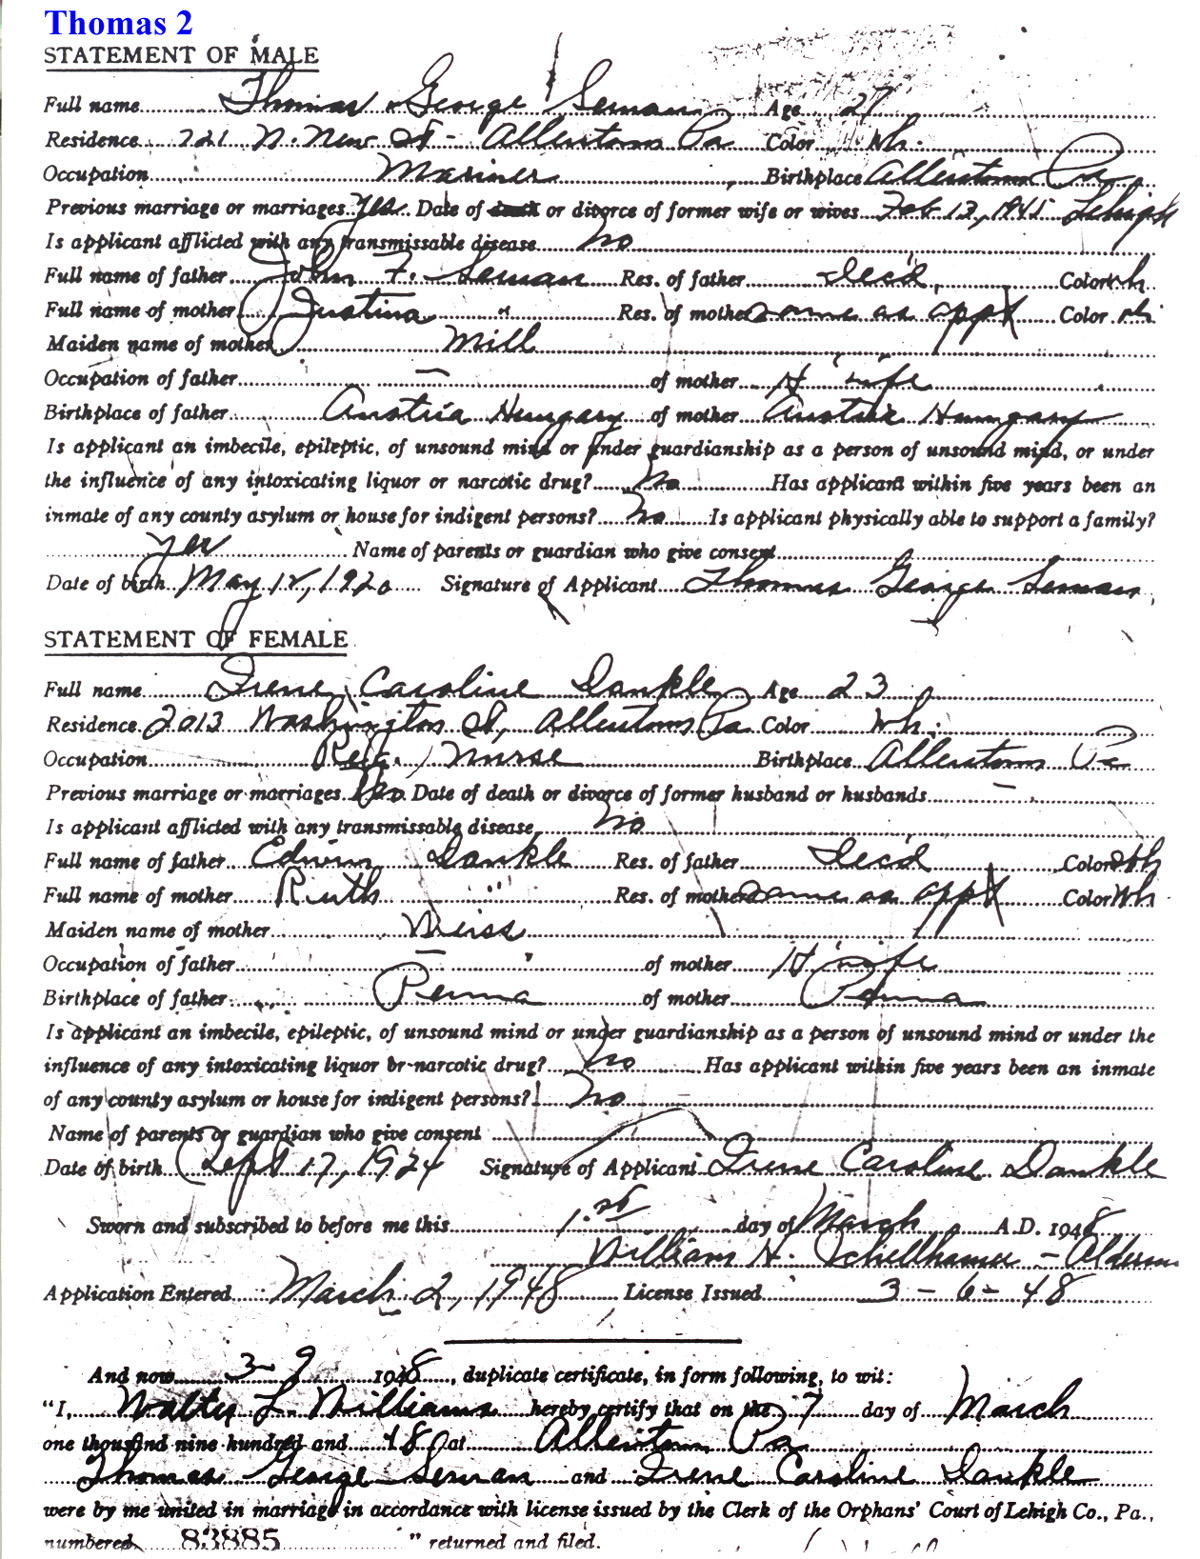 Thomas 2
STATEMENT OF MALE
Full name Thomas George Seman Age 27
Residence 721 N. New St - Allentown Pa Color Wh.
Occupation Mariner Birthplace Allentown Pa
Previous marriage or marriages Yes Date of death or divorce of former wife or wives Feb 12, 1945 Lehigh
Is applicant afflicted with any transmissable disease No
Full name of father John F. Seman Res. of father Dec'd Color wh
Full name of mother Justina " Res. of mother same as appt Color wh
Maiden name of mother Mill
Occupation of father — of mother H'wife
Birthplace of father Austria Hungary of mother Austria Hungary
Is applicant an imbecile, epileptic, of unsound mind or under guardianship as a person of unsound mind, or under
the influence of any intoxicating liquor or narcotic drug? No Has applicant within five years been an
inmate of any county asylum or house for indigent persons? No Is applicant physically able to support a family?
yes Name of parents or guardian who give consent
Date of birth May 12, 1920 Signature of Applicant Thomas George Seman
STATEMENT OF FEMALE
Full name Irene Caroline Dankle Age 23
Residence 2013 Washington St, Allentown Pa Color Wh.
Occupation Reg. Nurse Birthplace Allentown Pa
Previous marriage or marriages No Date of death or divorce of former husband or husbands —
Is applicant afflicted with any transmissable disease No
Full name of father Edwin Dankle Res. of father Dec'd Color Wh
Full name of mother Ruth " Res. of mother same as appt Color Wh
Maiden name of mother Weiss
Occupation of father — of mother H'wife
Birthplace of father Penna of mother Penna
Is applicant an imbecile, epileptic, of unsound mind or under guardianship as a person of unsound mind or under the
influence of any intoxicating liquor or narcotic drug? No Has applicant within five years been an inmate
of any county asylum or house for indigent persons? No
Name of parents or guardian who give consent
Date of birth Sept 17, 1924 Signature of Applicant Irene Caroline Dankle
Sworn and subscribed to before me this 1st day of March A.D. 1948
William H. Schellhamer - Alderman
Application Entered March 2, 1948 License Issued 3-6-48
And now 3-9 1948, duplicate certificate, in form following, to wit:
"I, Walter L. Williams hereby certify that on the 7 day of March
one thousand nine hundred and 48 at Allentown Pa
Thomas George Seman and Irene Caroline Dankle
were by me united in marriage in accordance with license issued by the Clerk of the Orphans' Court of Lehigh Co., Pa.,
numbered 83885 " returned and filed.